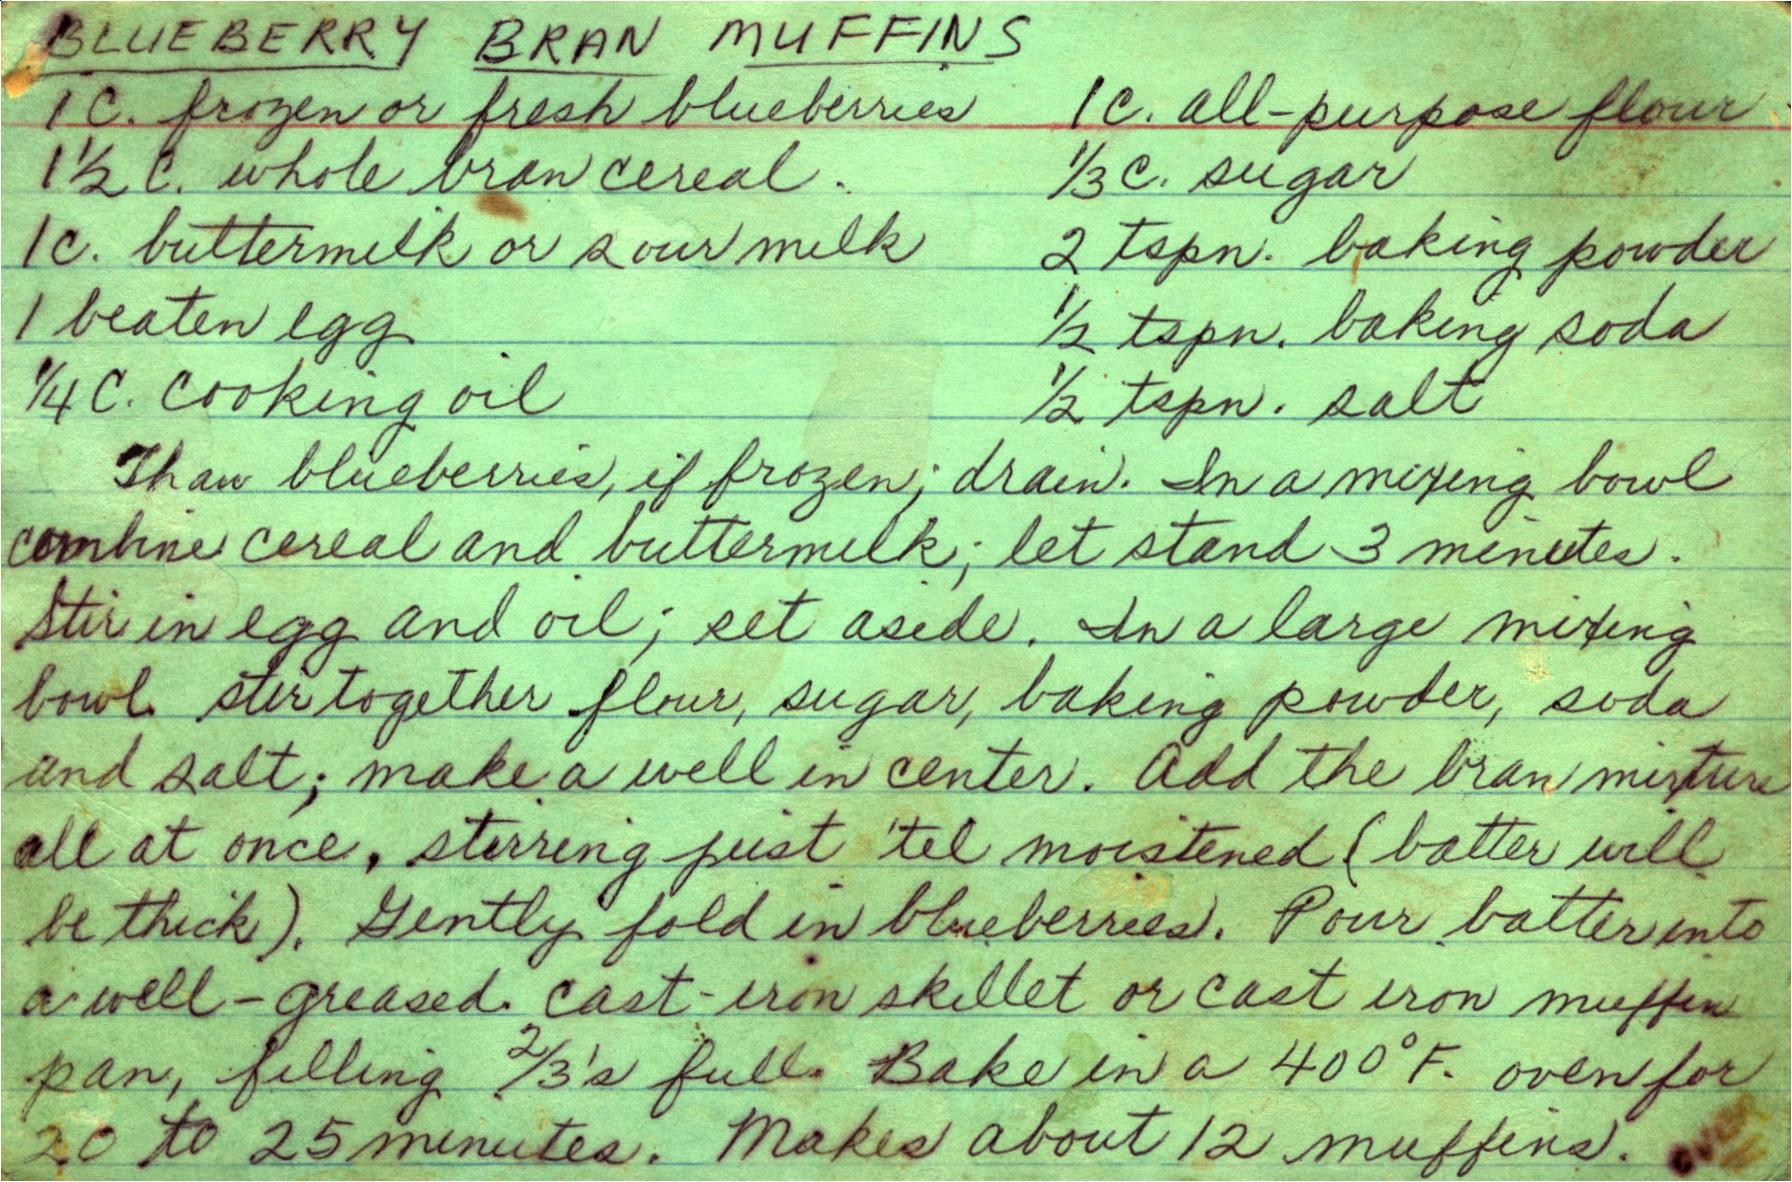 BLUEBERRY BRAN MUFFINS
1 C. frozen or fresh blueberries 1 c. all-purpose flour
1 1/2 C. whole bran cereal. 1/3 c. sugar
1 c. buttermilk or sour milk 2 tspn. baking powder
1 beaten egg 1/2 tspn. baking soda
1/4 C. cooking oil 1/2 tspn. salt
Thaw blueberries, if frozen; drain. In a mixing bowl
combine cereal and buttermilk; let stand 3 minutes.
Stir in egg and oil; set aside. In a large mixing
bowl stir together flour, sugar, baking powder, soda
and salt; make a well in center. Add the bran mixture
all at once, stirring just 'til moistened (batter will
be thick). Gently fold in blueberries. Pour batter into
a well-greased cast-iron skillet or cast iron muffin
pan, filling 2/3's full. Bake in a 400°F. oven for
20 to 25 minutes. Makes about 12 muffins. over